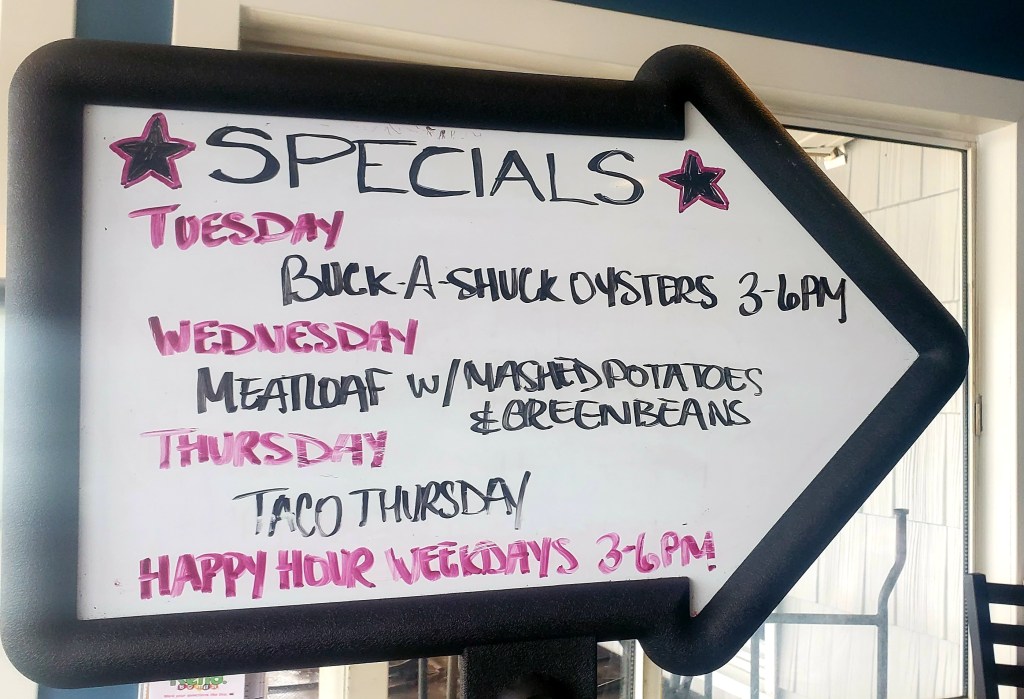 SPECIALS
TUESDAY
BUCK-A-SHUCK OYSTERS 3-6PM
WEDNESDAY
MEATLOAF W/ MASHED POTATOES
& GREEN BEANS
THURSDAY
TACO THURSDAY
HAPPY HOUR WEEKDAYS 3-6PM!